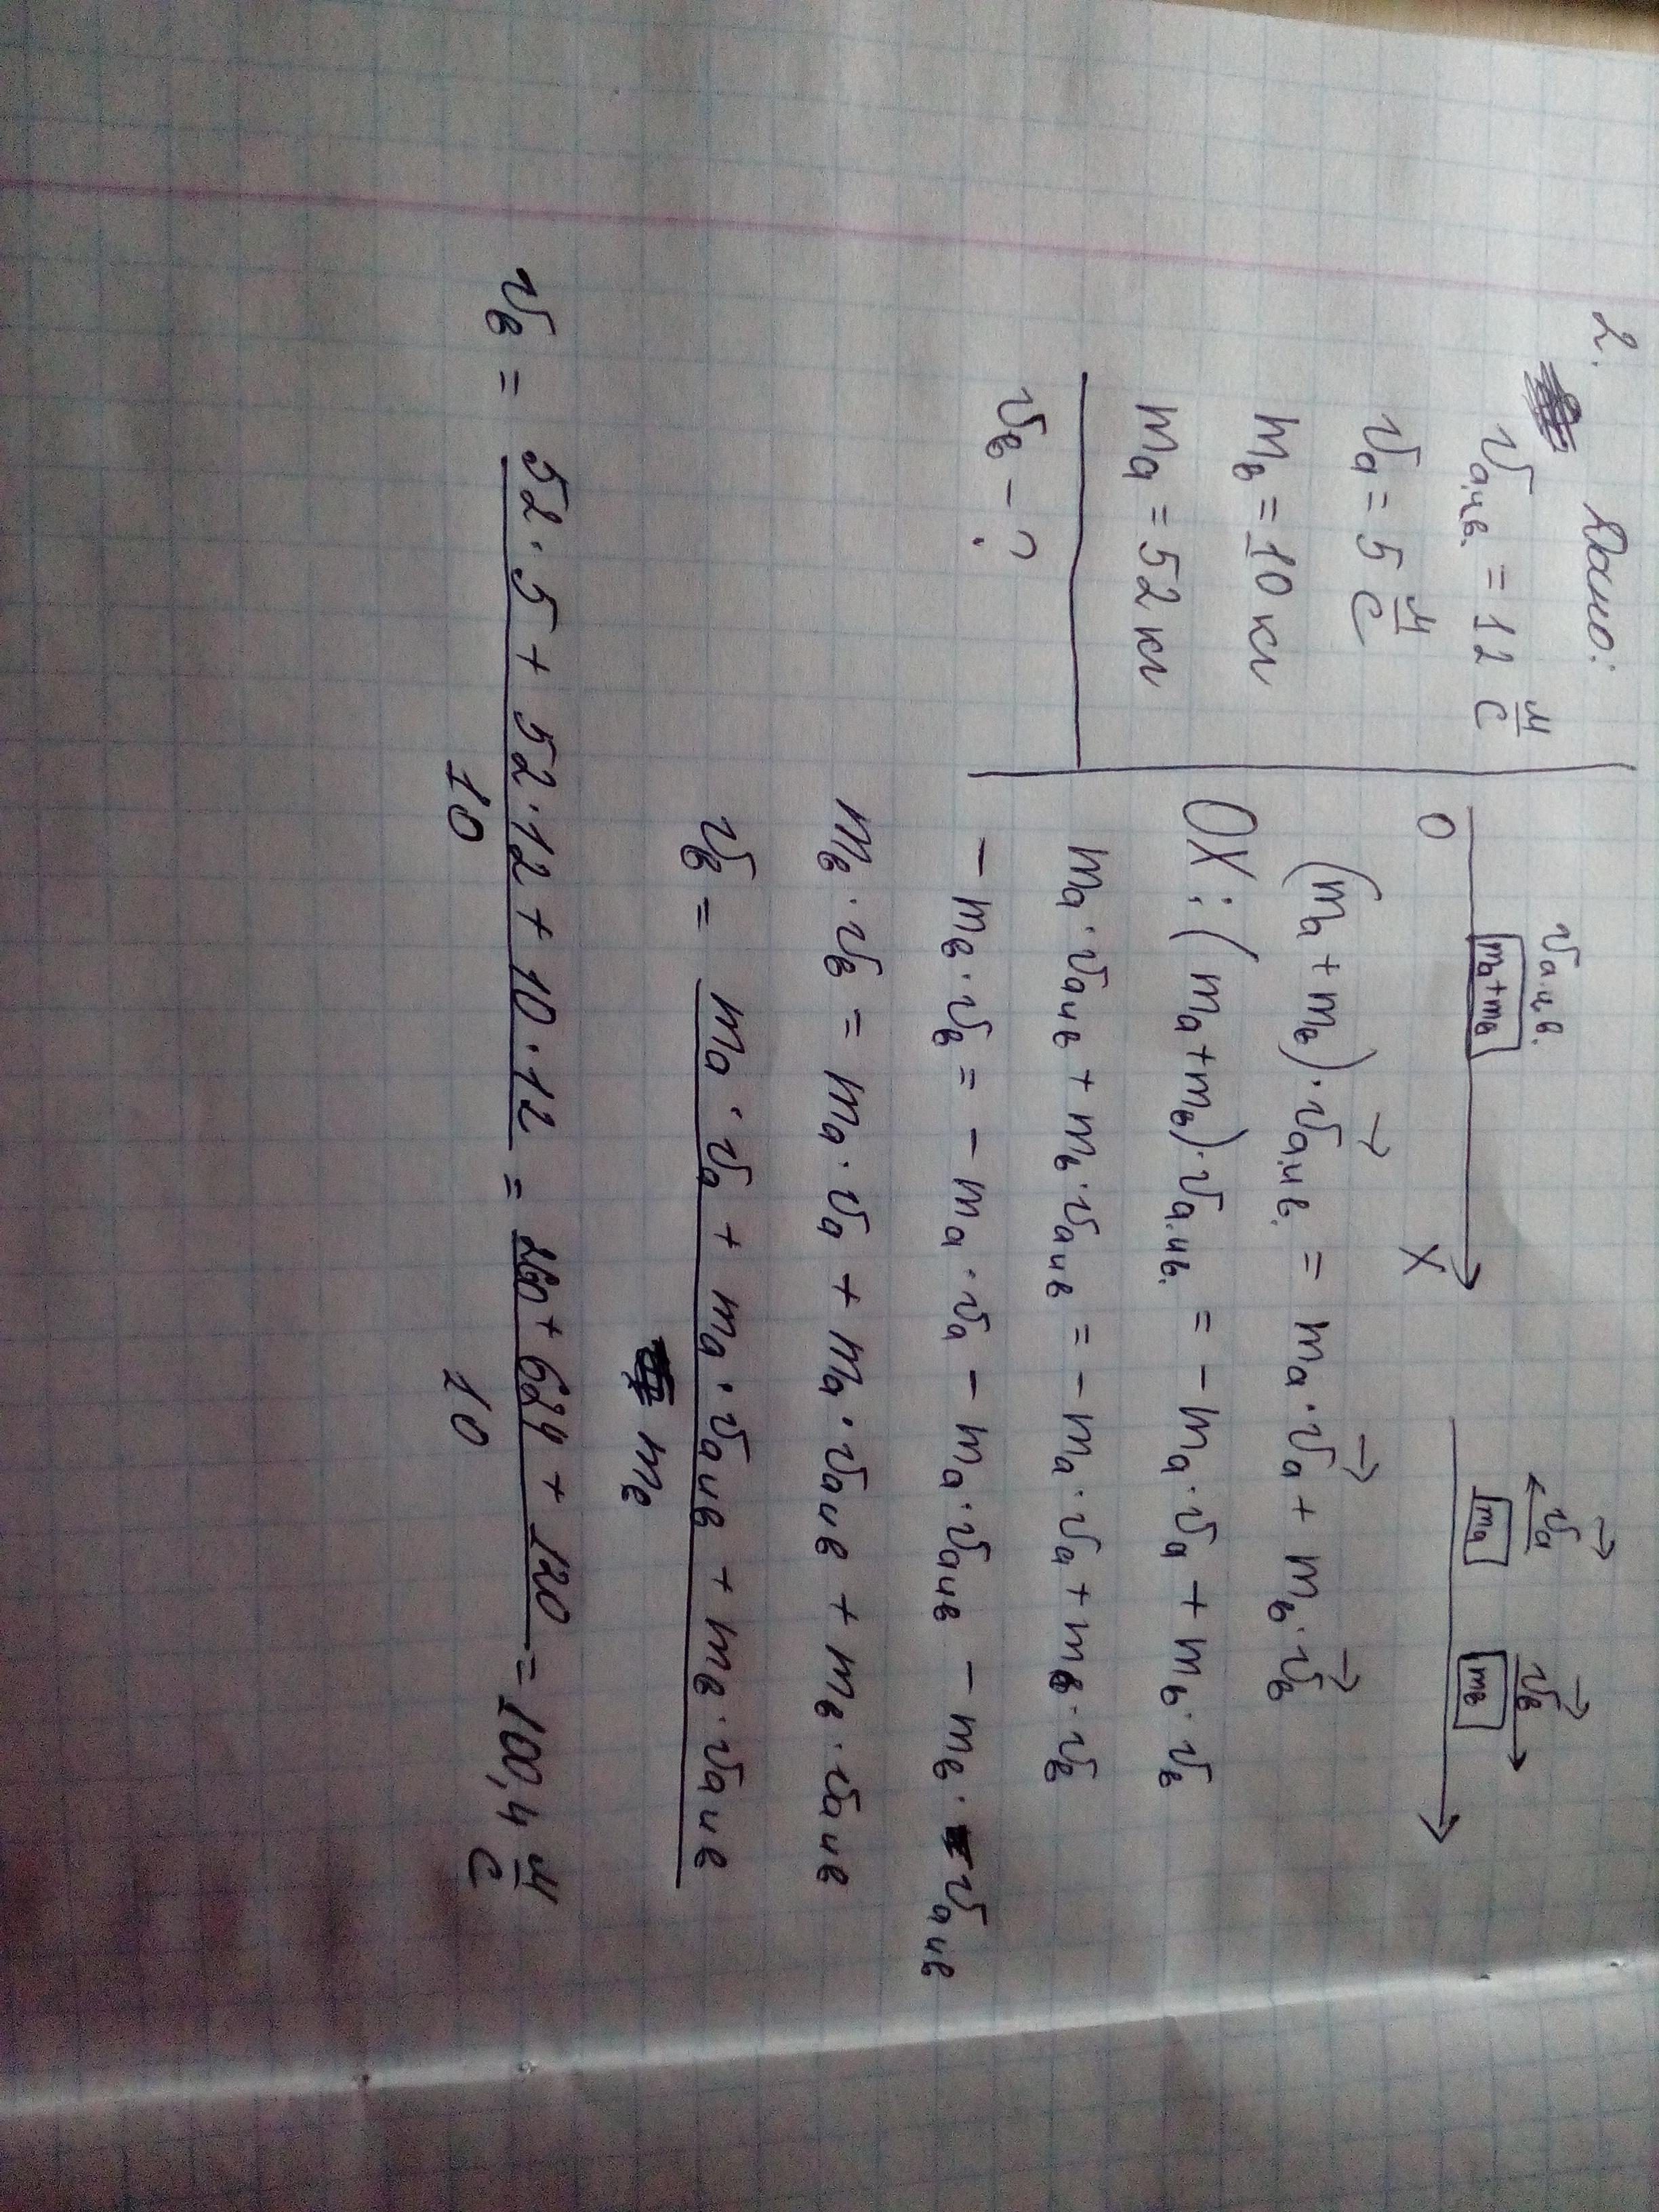 2. Дано:
v а.и.в. = 12 м/с
v а = 5 м/с
m в = 10 кг
m а = 52 кг
v в - ?
v а.и.в.
mа+mв
O X
v⃗а v⃗в
mа mв
(mа + mв) · v⃗а.и.в. = mа · v⃗а + mв · v⃗в
OX: (mа + mв) · vа.и.в. = - mа · vа + mв · vв
mа · vаив + mв · vаив = - mа · vа + mв · vв
- mв · vв = - mа · vа - mа · vаив - mв · vаив
mв · vв = mа · vа + mа · vаив + mв · vаив
vв = (mа · vа + mа · vаив + mв · vаив) / mв
vв = (52 · 5 + 52 · 12 + 10 · 12) / 10 = (260 + 624 + 120) / 10 = 100,4 м/с